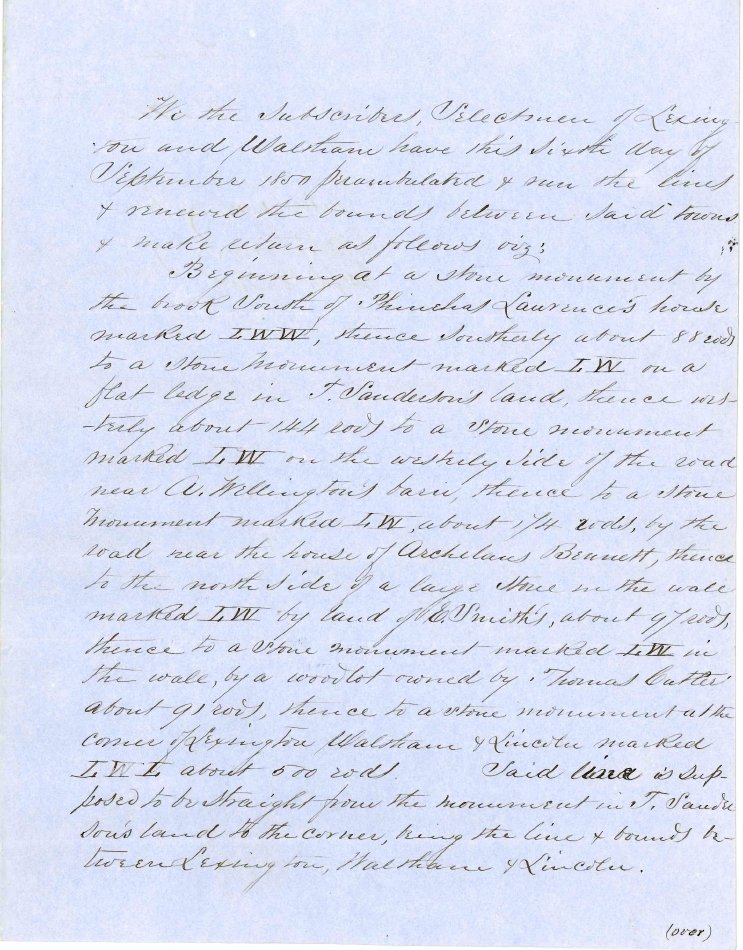 We the Subscribers, Selectmen of Lexing-
-ton and Waltham have this Sixth day of
September 1850 perambulated & run the lines
& renewed the bounds between said towns
& make return as follows viz;
Beginning at a stone monument by
the brook South of Phinehas Lawrence's house
marked L W W, thence Southerly about 88 rods
to a stone monument marked L W on a
flat ledge in T. Sanderson's land, thence wes-
-terly about 144 rods to a stone monument
marked L W on the westerly side of the road
near A. Wellington's barn, thence to a stone
monument marked L W, about 174 rods, by the
road near the house of Archelaus Bennett, thence
to the north side of a large stone in the wall
marked L W by land of E. Smith's, about 97 rods,
thence to a stone monument marked L W in
the wall, by a woodlot owned by Thomas Cutler
about 91 rods, thence to a stone monument at the
corner of Lexington Waltham & Lincoln marked
L W L about 500 rods. Said line is sup-
posed to be straight from the monument in T. Sander
son's land to the corner, being the line & bounds be-
tween Lexington, Waltham & Lincoln.
(over)